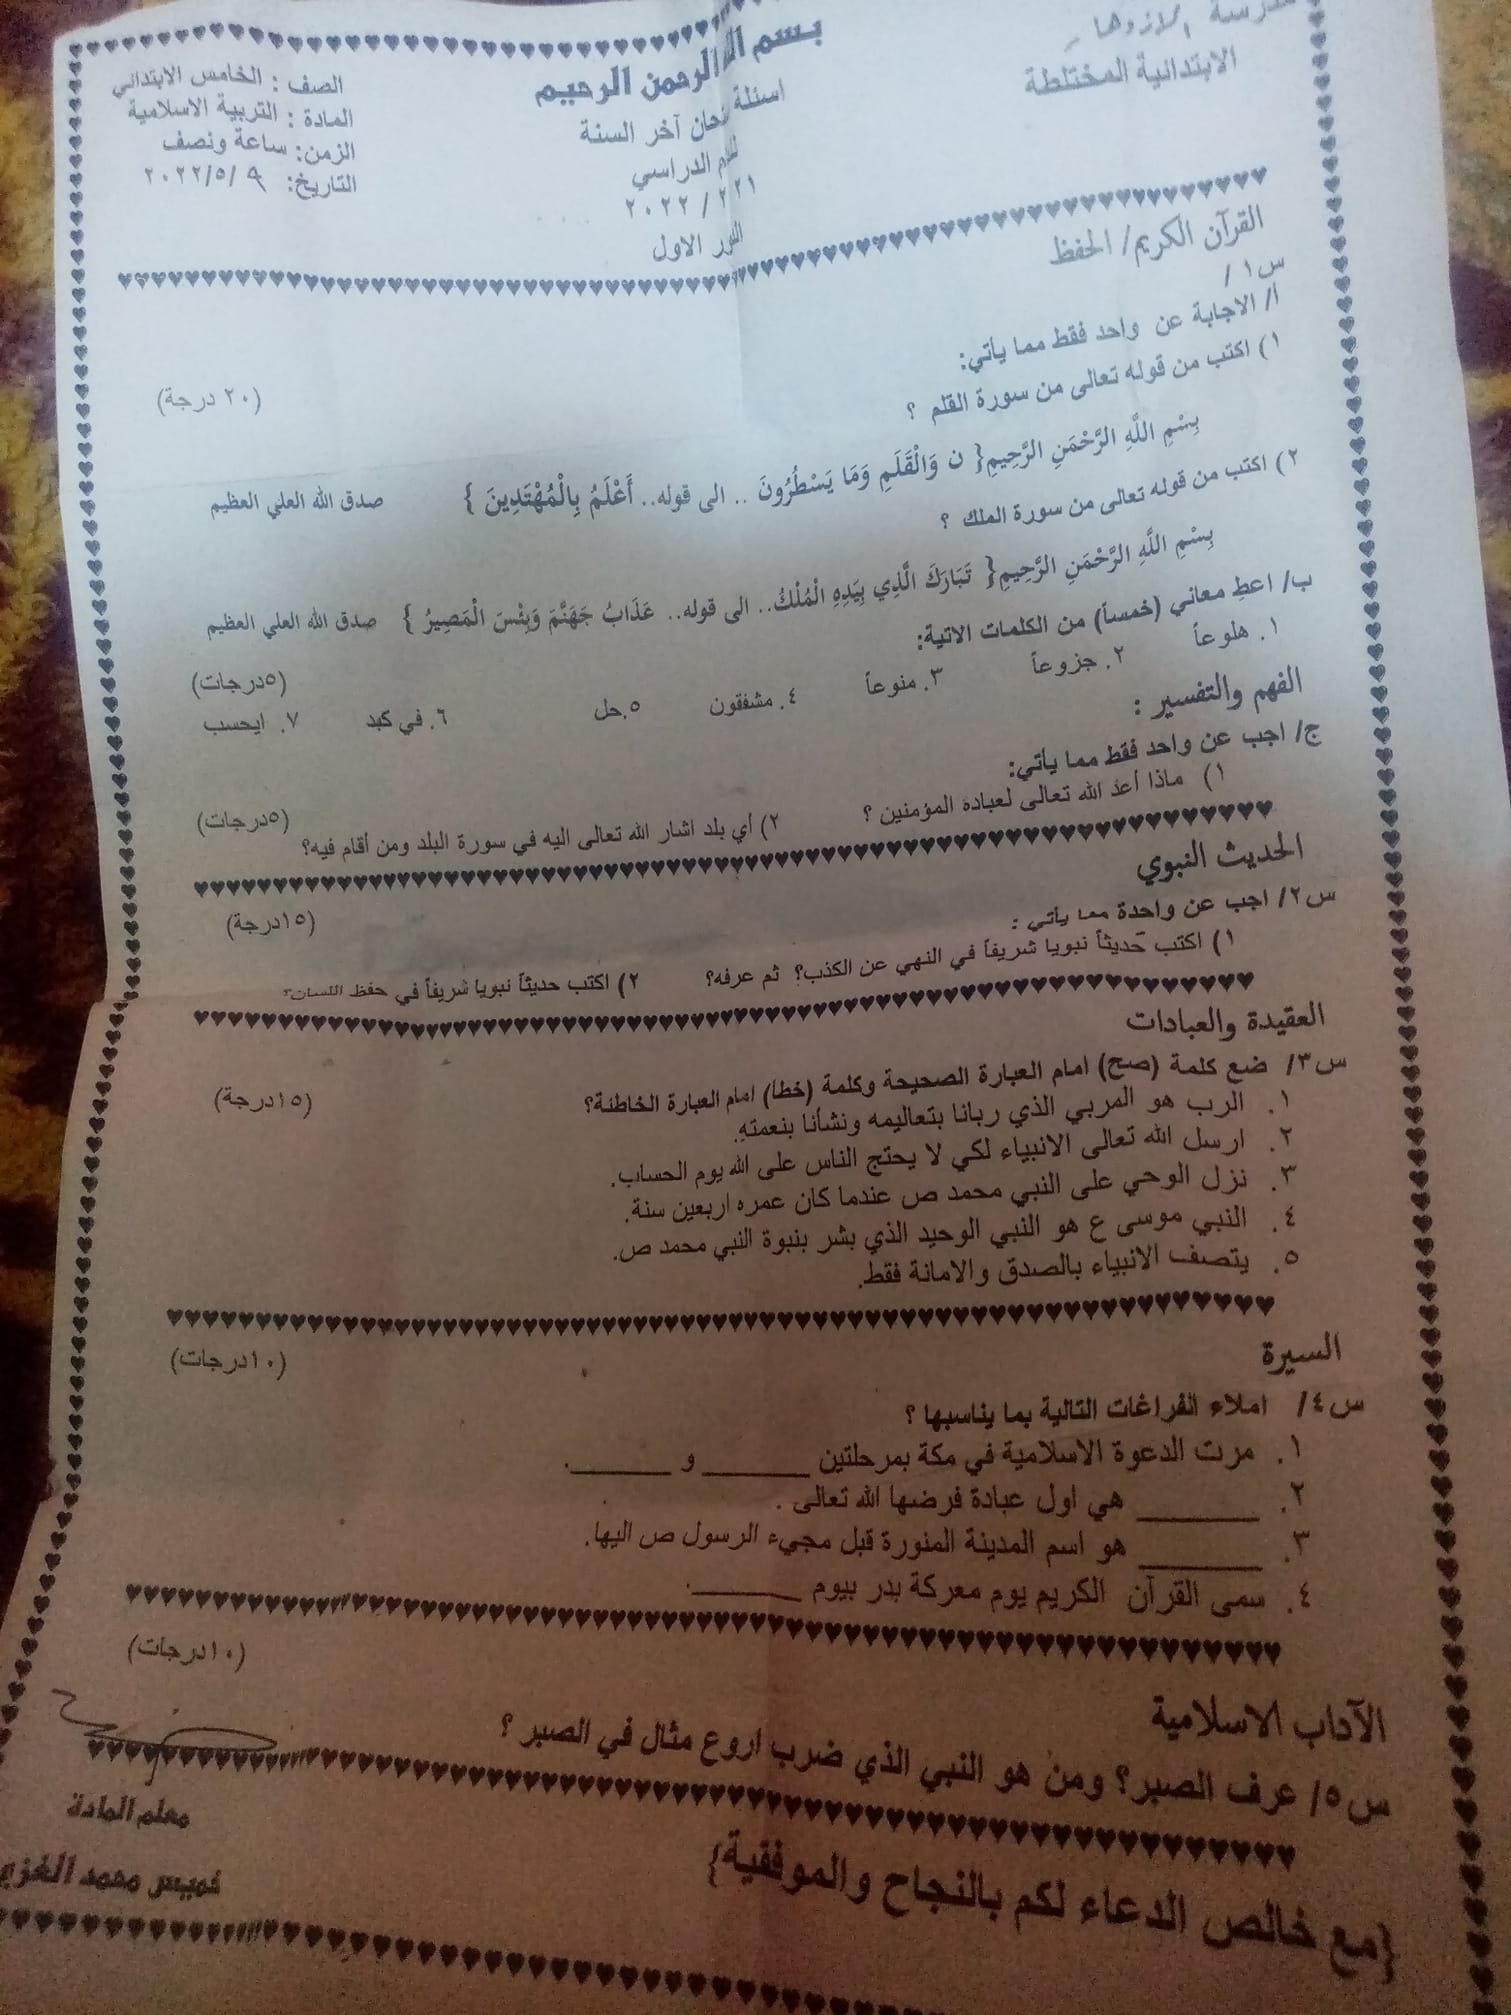 مدرسة
الابتدائية المختلطة
بسم الله الرحمن الرحيم
اسئلة امتحان آخر السنة
للعام الدراسي
٢٠٢١ / ٢٠٢٢
الدور الاول
الصف : الخامس الابتدائي
المادة : التربية الاسلامية
الزمن: ساعة ونصف
التاريخ: ٩ /٢٠٢٢/٥
القرآن الكريم/ الحفظ
س١ /
أ/ الاجابة عن واحد فقط مما يأتي:
١) اكتب من قوله تعالى من سورة القلم ؟ (٢٠ درجة)
بِسْمِ اللَّهِ الرَّحْمَنِ الرَّحِيمِ{ ن وَالْقَلَمِ وَمَا يَسْطُرُونَ .. الى قوله.. أَعْلَمُ بِالْمُهْتَدِينَ } صدق الله العلي العظيم
٢) اكتب من قوله تعالى من سورة الملك ؟
بِسْمِ اللَّهِ الرَّحْمَنِ الرَّحِيمِ{ تَبَارَكَ الَّذِي بِيَدِهِ الْمُلْكُ.. الى قوله.. عَذَابُ جَهَنَّمَ وَبِئْسَ الْمَصِيرُ } صدق الله العلي العظيم
ب/ اعطِ معاني (خمساً) من الكلمات الاتية: (٥درجات)
١. هلوعاً ٢. جزوعاً ٣. منوعاً ٤. مشفقون ٥.حل ٦. في كبد ٧. ايحسب
الفهم والتفسير :
ج/ اجب عن واحد فقط مما يأتي: (٥درجات)
١) ماذا أعد الله تعالى لعبادة المؤمنين ؟ ٢) أي بلد اشار الله تعالى اليه في سورة البلد ومن أقام فيه؟
الحديث النبوي
س٢/ اجب عن واحدة مما يأتي : (١٥درجة)
١) اكتب حديثاً نبويا شريفاً في النهي عن الكذب؟ ثم عرفه؟ ٢) اكتب حديثاً نبويا شريفاً في حفظ اللسان؟
العقيدة والعبادات
س٣/ ضع كلمة (صح) امام العبارة الصحيحة وكلمة (خطأ) امام العبارة الخاطئة؟ (١٥درجة)
١. الرب هو المربي الذي ربانا بتعاليمه ونشأنا بنعمتهِ.
٢. ارسل الله تعالى الانبياء لكي لا يحتج الناس على الله يوم الحساب.
٣. نزل الوحي على النبي محمد ص عندما كان عمره اربعين سنة.
٤. النبي موسى ع هو النبي الوحيد الذي بشر بنبوة النبي محمد ص.
٥. يتصف الانبياء بالصدق والامانة فقط.
السيرة
س٤/ املاء الفراغات التالية بما يناسبها ؟ (١٠درجات)
١. مرت الدعوة الاسلامية في مكة بمرحلتين ______ و ______.
٢. ______ هي اول عبادة فرضها الله تعالى .
٣. ______ هو اسم المدينة المنورة قبل مجيء الرسول ص اليها.
٤. سمى القرآن الكريم يوم معركة بدر بيوم ______.
الآداب الاسلامية
س٥/ عرف الصبر؟ ومن هو النبي الذي ضرب اروع مثال في الصبر ؟ (١٠درجات)
{مع خالص الدعاء لكم بالنجاح والموفقية}
معلم المادة
خميس محمد